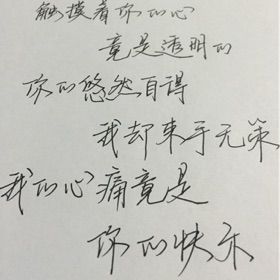 触摸着你的心
竟是透明的
你的悠然自得
我却束手无策
我的心痛竟是
你的快乐